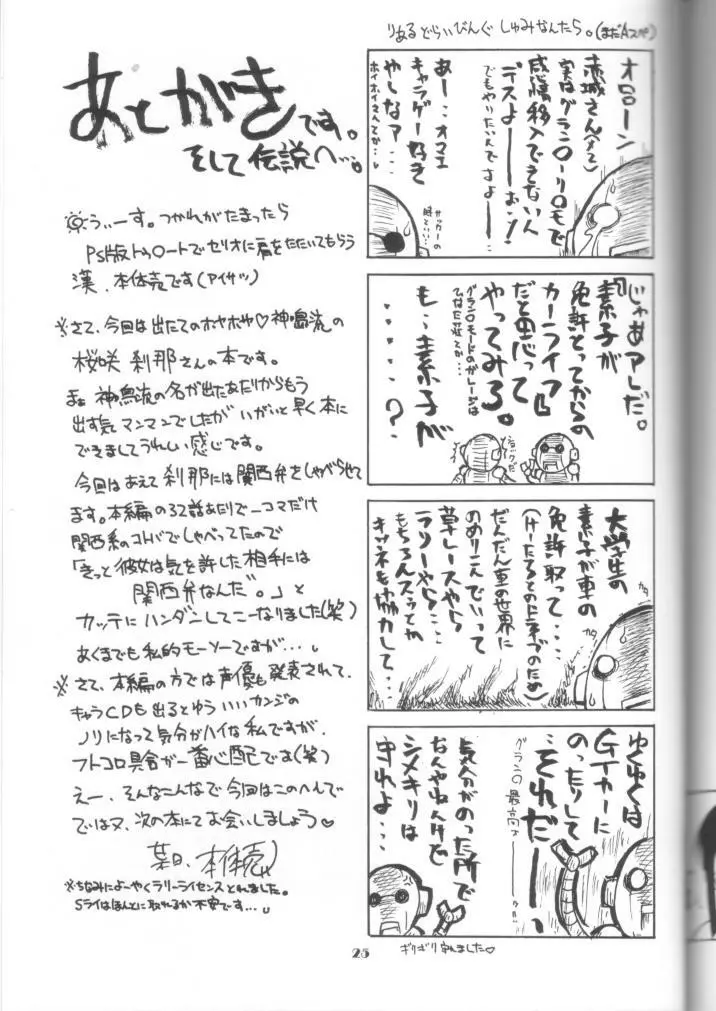 あとがきです。
そして伝説へ…。
うぃーす。つかれがたまったら
PS版トゥ○ートでセリオに肩をたたいてもらう
漢、本体売です(アイサツ)
※さて、今回は出たてのホヤホヤ♡神鳴流の
桜咲 刹那さんの本です。
まぁ 神鳴流の名が出たあたりからもう
出す気マンマンでしたが いがいと早く本に
できましてうれしい感じです。
今回はあえて 刹那には関西弁をしゃべらせて
ます。本編の32話あたりで一コマだけ
関西系のコトバでしゃべってたので
「きっと彼女は気を許した相手には
関西弁なんだ。」と
カッテにハンダンしてこーなりました(笑)
あくまでも私的モーソーですが…。
※さて、本編の方では声優も発表されて、
キャラCDも出るとゆういいカンジの
ノリになって気分がハイな私ですが、
フトコロ具合が一番心配です(笑)
えー、そんなこんなで今回はこのへんで
でわ又、次の本にてお会いしましょう♡
某日、本体売
※ちなみによーやくラリーライセンスとれました。
Sライはほんとに取れるか不安です…。
りあるどらいびんぐ しゅみなんたら。(まだAスペ)
オローン
赤城さん(メ2)
実はグラン○ーリ○モで
感情移入できない人
デスよーーおッ!
でもやりたいんですよーー
あー…オマエ
キャラゲー好き
やしなァ…
ホイホイさんてか…
サッカーの
時といい…
「じゃあアレだ。
素子が
免許とってからの
カーライフ」
だと思って
やってみろ。
グラン○モードのガレージは
ひなた荘てか…
も、素子が
・・・・・?
ショックだ
大学生の
素子が車の
免許取って…
(けーたろるとのドライブのため)
だんだん車の世界に
のめりこんでいって
草レースやら
ラリーやら…
もちろんスゥとか
キツネも協力して…
カタ
カタ
ゆくゆくは
GTカーに
のったりして
…それだーーっ
グラン○最高ォーーッ!!
気分がのった所で
なんやねんけど
シメキリは
守れよ…
ギリギリ守れました♡
25